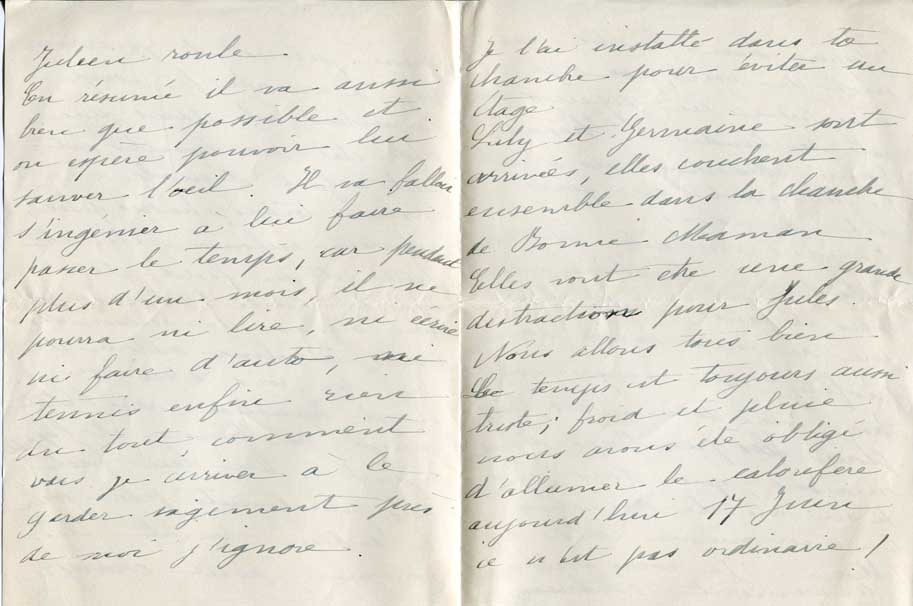 Julien roule.
En résumé il va aussi
bien que possible et
on espère pouvoir lui
sauver l'oeil. Il va falloir
s'ingénier à lui faire
passer le temps, car pendant
plus d'un mois, il ne
pourra ni lire, ni écrire
ni faire d'auto, ni
tennis enfin rien
du tout comment
vais je arriver à le
garder sagement près
de moi j'ignore.
Je l'ai installé dans ta
chambre pour éviter un
étage
Luby et Germaine sont
arrivées, elles couchent
ensemble dans la chambre
de Bonne Maman
Elles vont être une grande
distraction pour Jules.
Nous allons tous bien
Le temps est toujours aussi
triste; froid et pluie
nous avons été obligé
d'allumer le calorifère
aujourd'hui 17 Juin
ce n'est pas ordinaire!